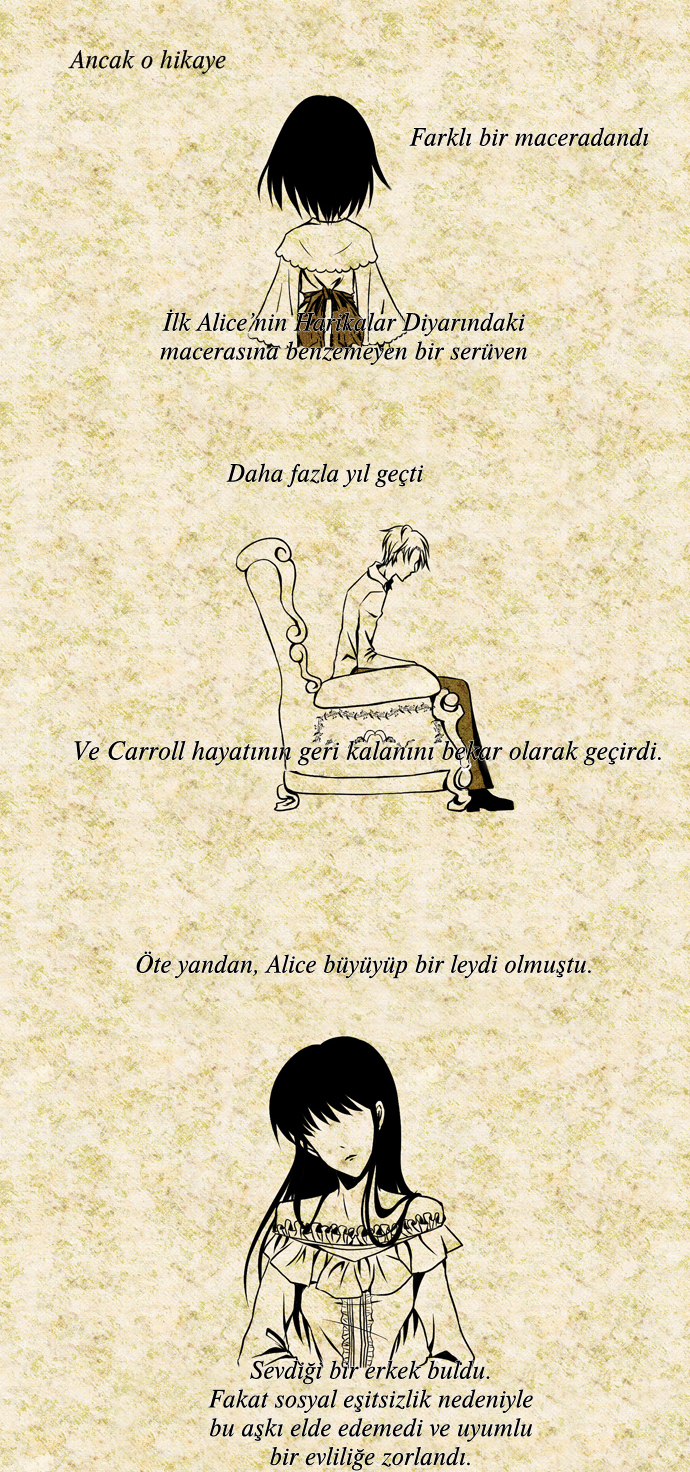 Ancak o hikaye
Farklı bir maceradandı
İlk Alice'nin Harikalar Diyarındaki
macerasına benzemeyen bir serüven
Daha fazla yıl geçti
Ve Carroll hayatının geri kalanını bekar olarak geçirdi.
Öte yandan, Alice büyüyüp bir leydi olmuştu.
Sevdiği bir erkek buldu.
Fakat sosyal eşitsizlik nedeniyle
bu aşkı elde edemedi ve uyumlu
bir evliliğe zorlandı.